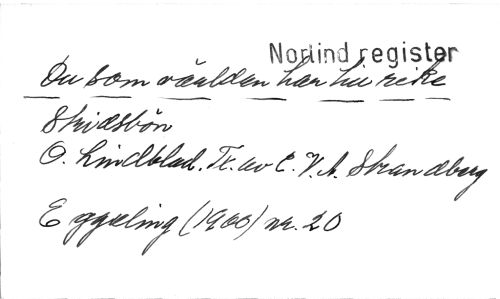 Norlind register
Du som världen har till rike
Stridsbön
O. Lindblad. Tx. av C. V. A. Strandberg
Eggeling (1900) nr. 20